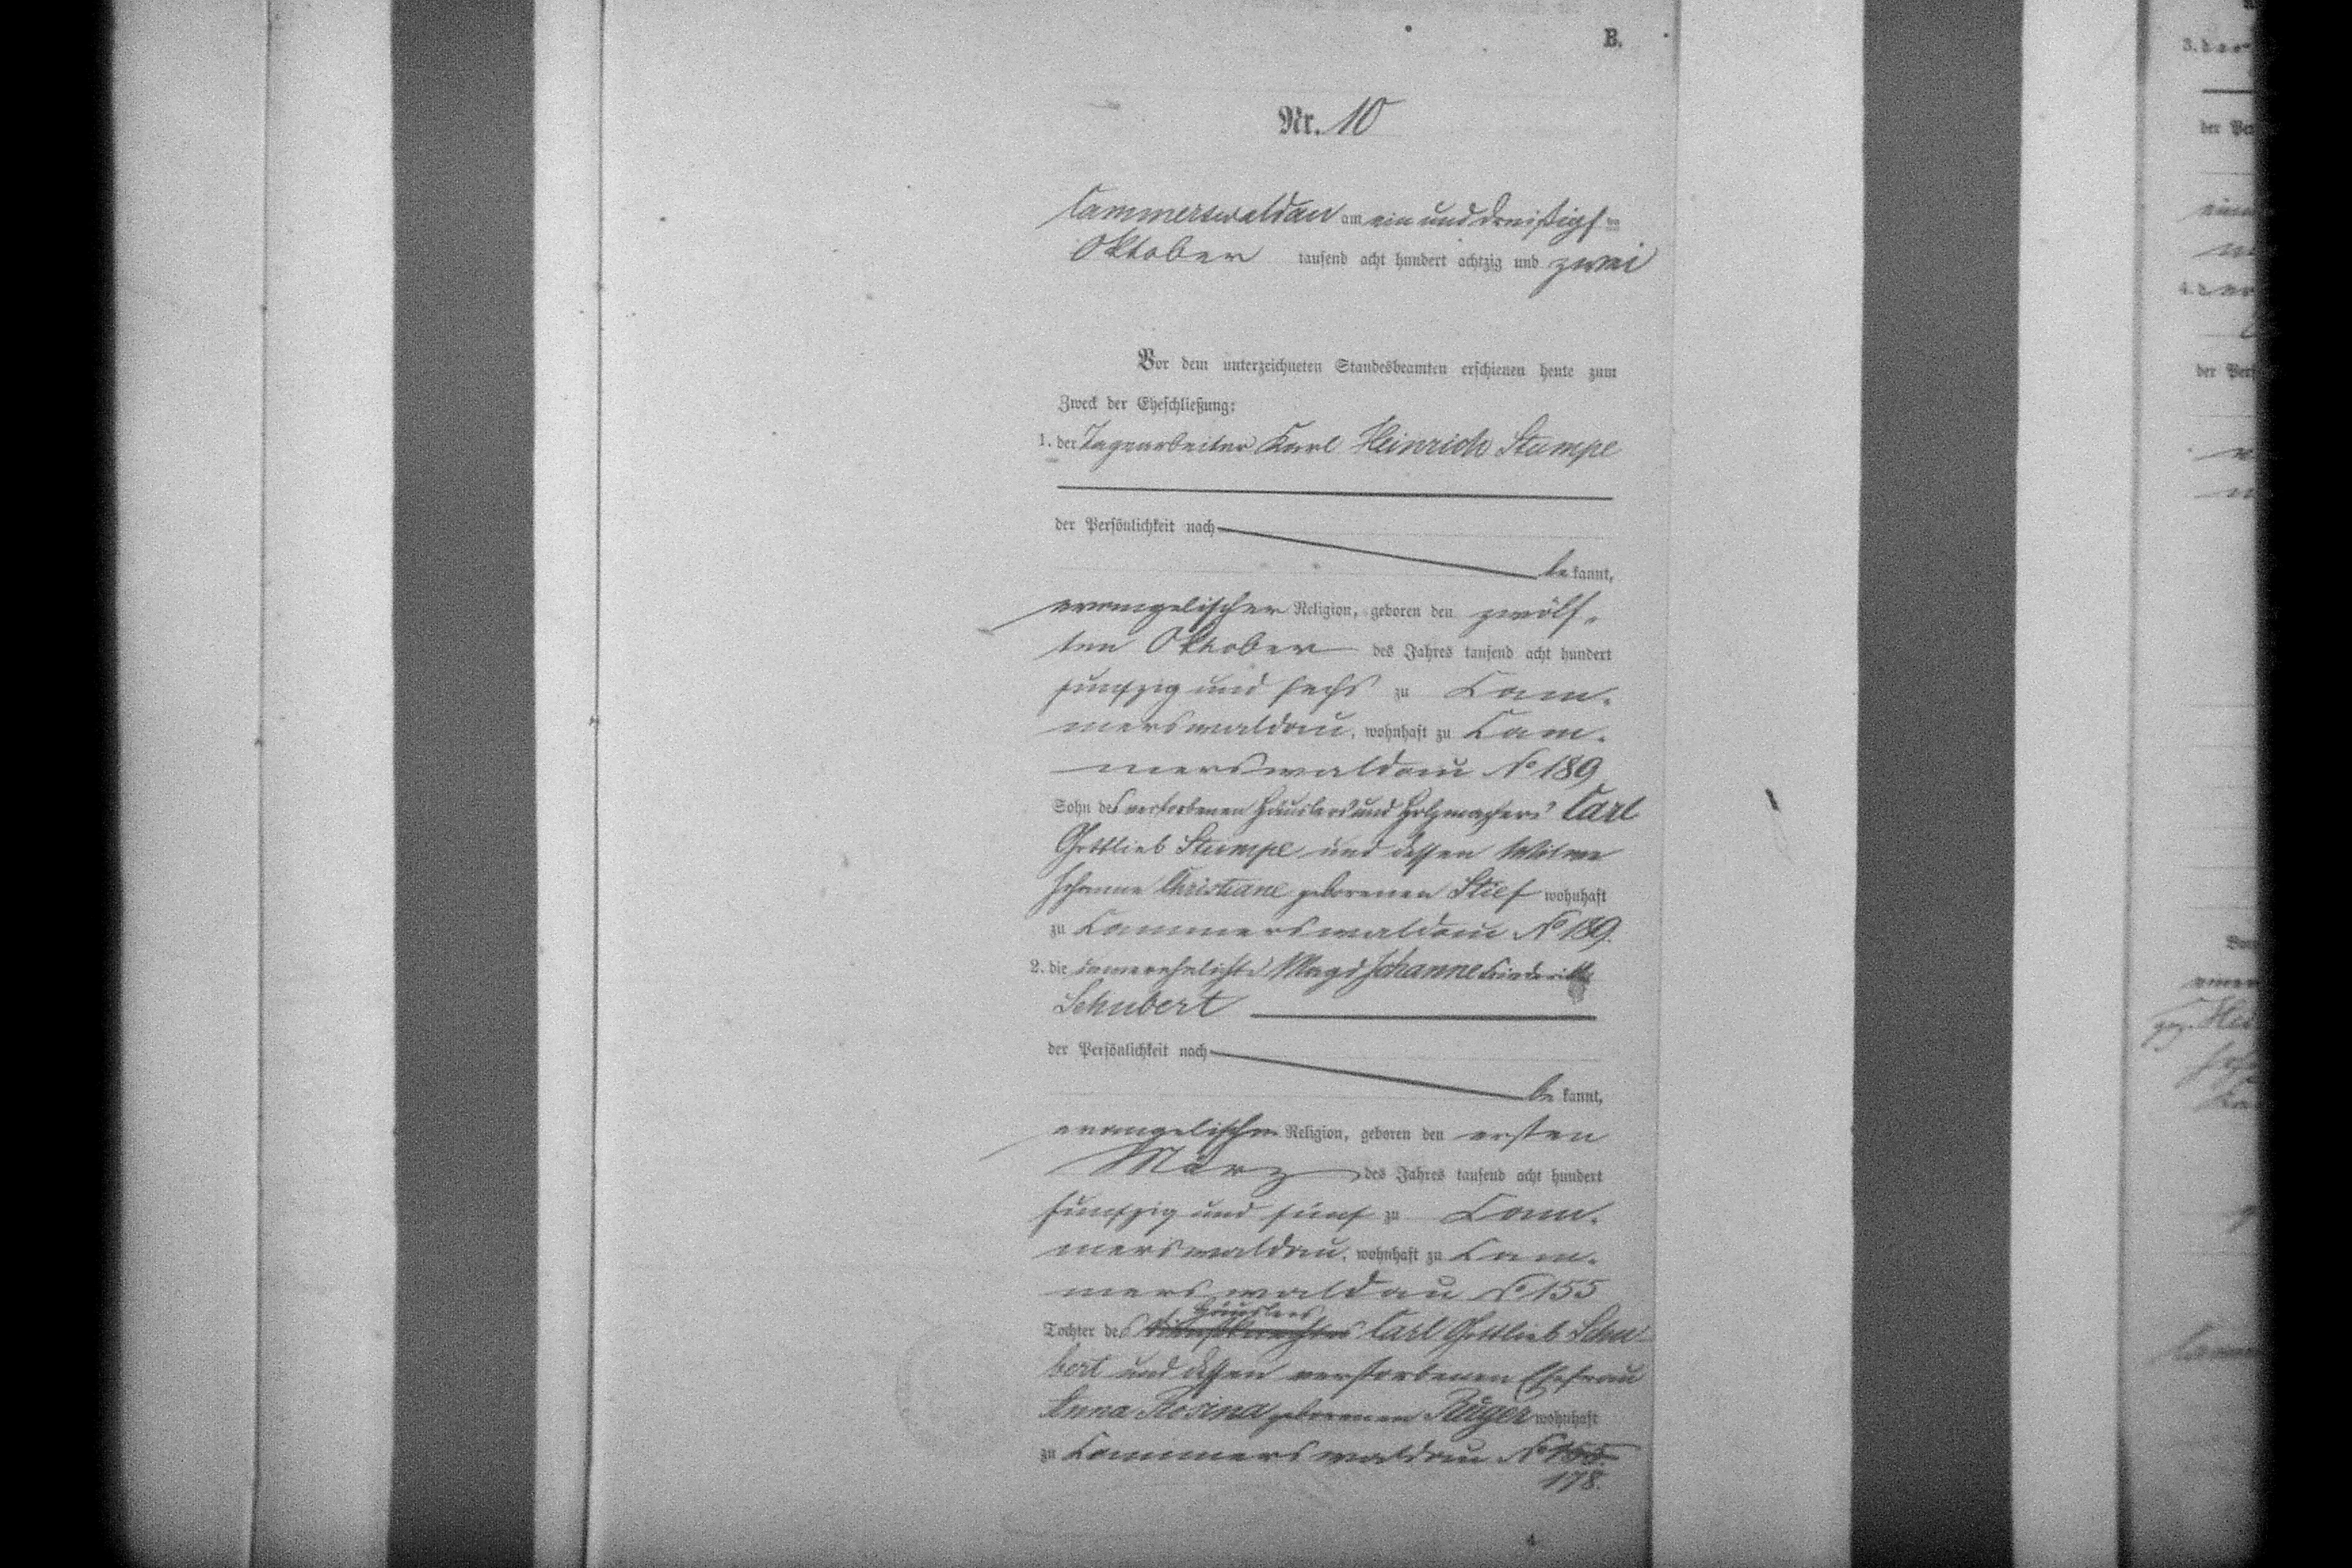 B.
Nr. 10
Cammerswaldau am ein und dreißigsten
Oktober tausend acht hundert achtzig und zwei
Vor dem unterzeichneten Standesbeamten erschienen heute zum
Zweck der Eheschließung:
1. der Tagearbeiter Karl Heinrich Stumpe
der Persönlichkeit nach
be kannt,
evangelischer Religion, geboren den zwölf-
ten Oktober des Jahres tausend acht hundert
fünfzig und sechs zu Cam-
merswaldau, wohnhaft zu Cam-
merswaldau No 189
Sohn des verstorbenen Häuslers und Holzmachers Carl
Gottlieb Stumpe und dessen Witwe
Johanne Christiane geborenen Stief wohnhaft
zu Cammerswaldau No 189.
2. die unverehelichte Magd Johanne Friederike
Schubert
der Persönlichkeit nach
be kannt,
evangelischer Religion, geboren den ersten
März des Jahres tausend acht hundert
fünfzig und fünf zu Cam-
merswaldau, wohnhaft zu Cam-
merswaldau No 155
Häuslers
Tochter des Carl Gottlieb Schu
bert und dessen verstorbenen Ehefrau
Anna Rosina geborenen Ruger wohnhaft
zu Cammerswaldau No 155.
178.
3. der
der Per
4. der
der Pers